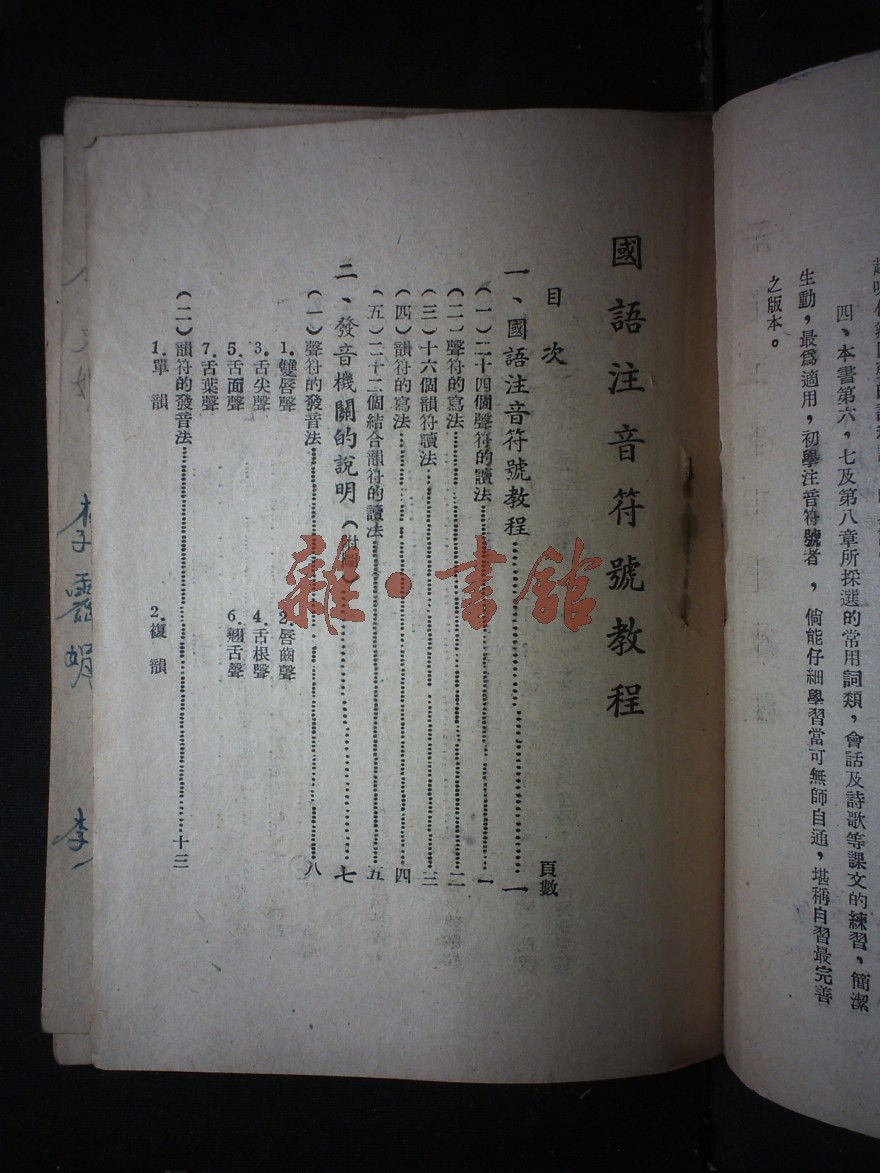 四、本書第六，七及第八章所採選的常用詞類，會話及詩歌等課文的練習，簡潔
生動，最爲適用，初學注音符號者，倘能仔細學習當可無師自通，堪稱自習最完善
之版本。
國語注音符號教程
目次 頁數
一、國語注音符號教程 一
（一）二十四個聲符的讀法 一
（二）聲符的寫法 二
（三）十六個韻符讀法 三
（四）韻符的寫法 四
（五）二十二個結合韻符的讀法 五
二、發音機關的說明（附圖） 七
（一）聲符的發音法 八
1.雙唇聲 2.唇齒聲
3.舌尖聲 4.舌根聲
5.舌面聲 6.翹舌聲
7.舌葉聲
（二）韻符的發音法 十三
1.單韻 2.複韻
雜·書館
李